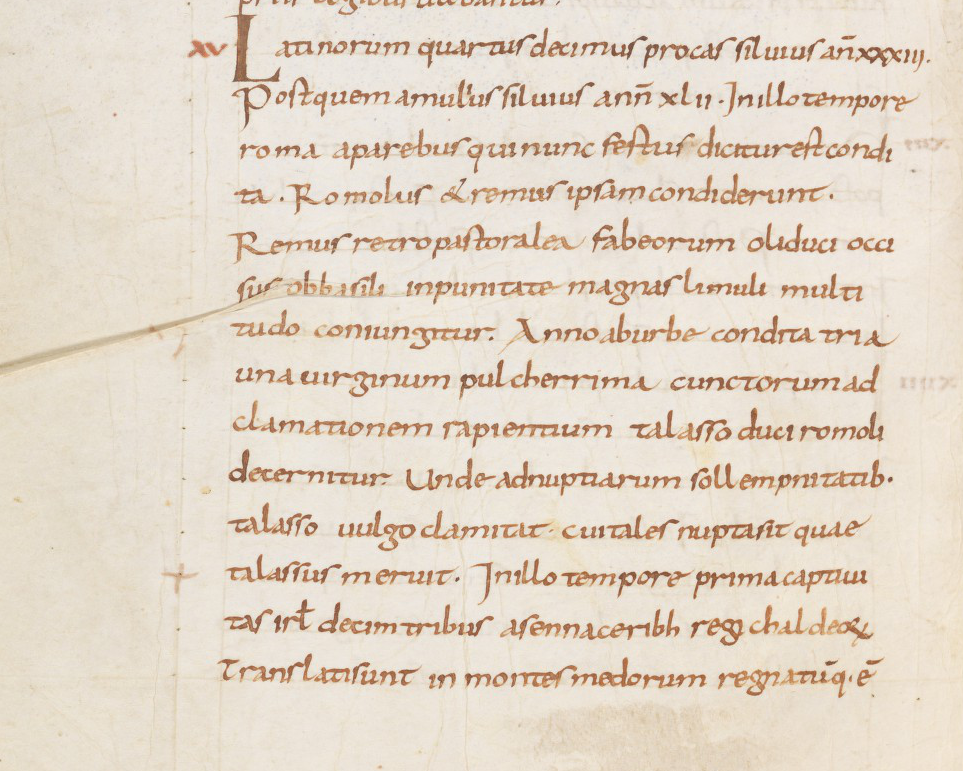 xv Latinorum quartus decimus procas siluius añ xxxiii.
Postquem amulius siluius anñ xlii. In illo tempore
roma aparebus qui nunc festus dicitur est condi
ta. Romolus & remus ipsam condiderunt.
Remus retro pastoralea fabeorum oliduci occi
sus obbasili inpunitate magnas limuli multi
tudo coniungitur. Anno ab urbe condita tria
una uirginum pulcherrima cunctorum ad
clamationem rapientium talasso duci romoli
decernitur. Unde ad nuptiarum sollempnitatib.
talasso uulgo clamitat. cui tales nupta sit quae
talassus meruit. In illo tempore prima captiui
tas irł decim tribus a sennaceribh
translati sunt in montes medorum regnatūq. ē